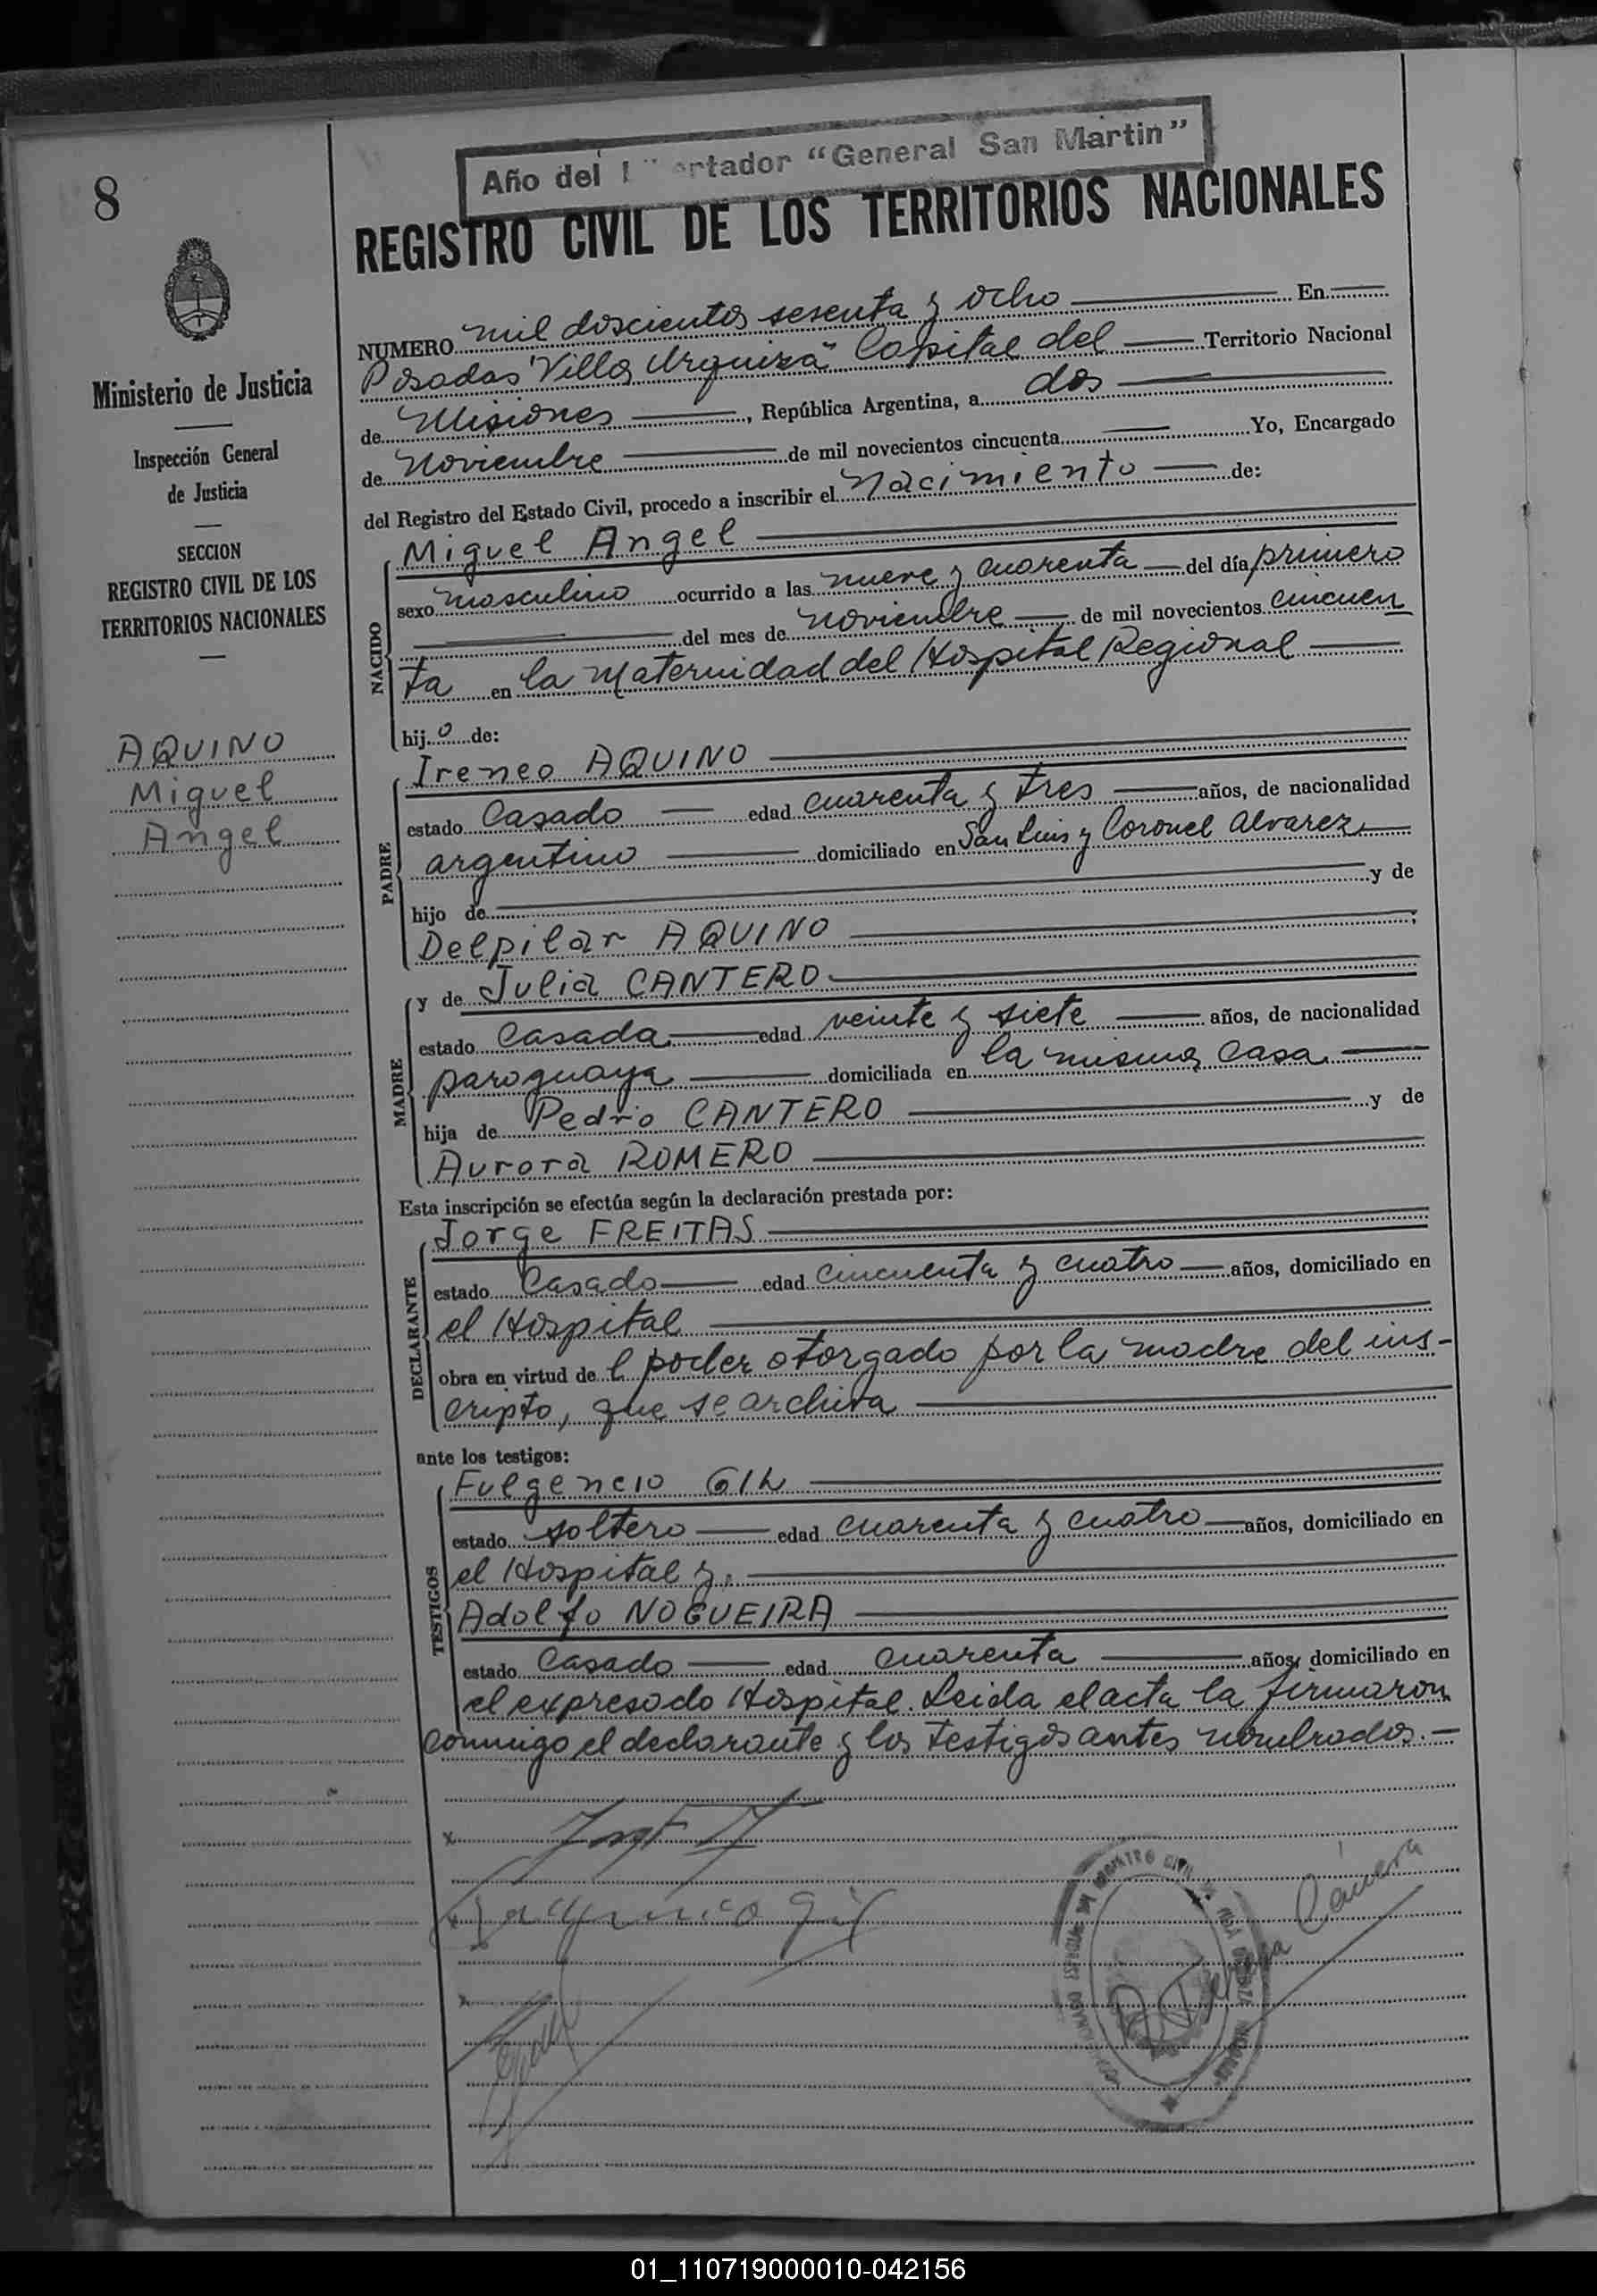 Año del Libertador “General San Martin”
8
REGISTRO CIVIL DE LOS TERRITORIOS NACIONALES
Ministerio de Justicia
Inspección General
de Justicia
SECCION
REGISTRO CIVIL DE LOS
TERRITORIOS NACIONALES
AQUINO
Miguel
Angel
NUMERO mil doscientos sesenta y ocho En
Posadas "Villa Urquiza" Capital del Territorio Nacional
de Misiones, República Argentina, a dos
de Noviembre de mil novecientos cincuenta Yo, Encargado
del Registro del Estado Civil, procedo a inscribir el Nacimiento de:
NACIDO
Miguel Angel
sexo masculino ocurrido a las nueve y cuarenta del día primero
del mes de noviembre de mil novecientos cincuen
ta en la Maternidad del Hospital Regional
hijo de:
PADRE
Ireneo AQUINO
estado Casado edad cuarenta y tres años, de nacionalidad
argentino domiciliado en San Luis y Coronel Alvarez
hijo de y de
Delpilar AQUINO
MADRE
y de Julia CANTERO
estado Casada edad veinte y siete años, de nacionalidad
paraguaya domiciliada en la misma casa
hija de Pedro CANTERO y de
Aurora ROMERO
Esta inscripción se efectúa según la declaración prestada por:
DECLARANTE
Jorge FREITAS
estado Casado edad cincuenta y cuatro años, domiciliado en
el Hospital
obra en virtud de l poder otorgado por la madre del ins-
cripto, que se archiva
ante los testigos:
TESTIGOS
Fulgencio GIL
estado soltero edad cuarenta y cuatro años, domiciliado en
el Hospital y,
Adolfo NOGUEIRA
estado Casado edad cuarenta años, domiciliado en
el expresado Hospital. Leida el acta la firmaron
conmigo el declarante y los testigos antes nombrados.-
01_110719000010-042156